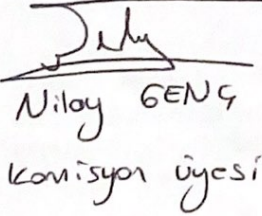 Nilay GENÇ
Komisyon üyesi